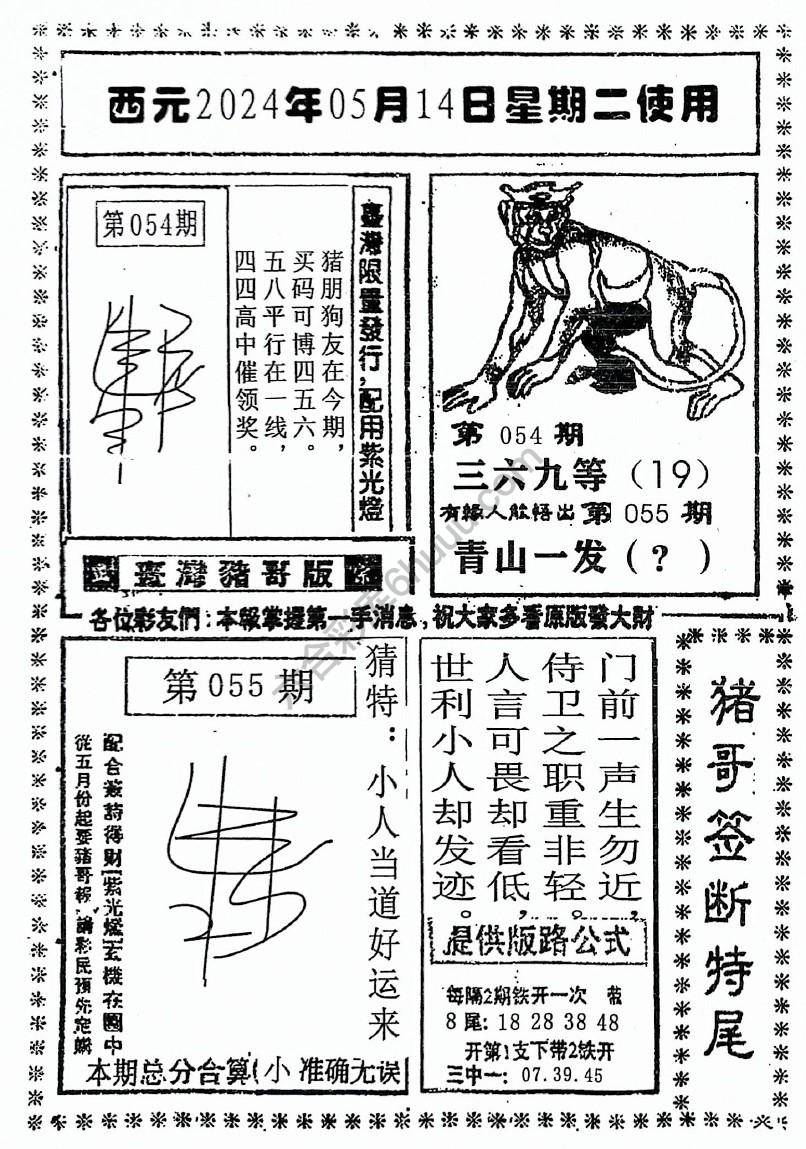 西元2024年05月14日星期二使用
第054期
臺灣限量發行,配用紫光燈
猪朋狗友在今期，
买码可博四五六。
五八平行在一线，
四四高中催领奖。
臺灣豬哥版
第 054 期
三六九等（19）
有緣人能悟出 第 055 期
青山一发（？）
各位彩友們：本報掌握第一手消息，祝大家多看原版發大財
第 055 期
猜特：小人当道好运来
配合簽詩得財紫光燈玄機在圖中
從五月份起要豬哥報，請彩民預先定購
本期总分合算(小 准确无误
门前一声生勿近，
侍卫之职重非轻。
人言可畏却看低，
世利小人却发迹。
提供版路公式
每隔2期铁开一次 带
8尾: 18 28 38 48
开第1支下带2铁开
三中一: 07.39.45
猪哥签断特尾
六合彩库6huuu.com